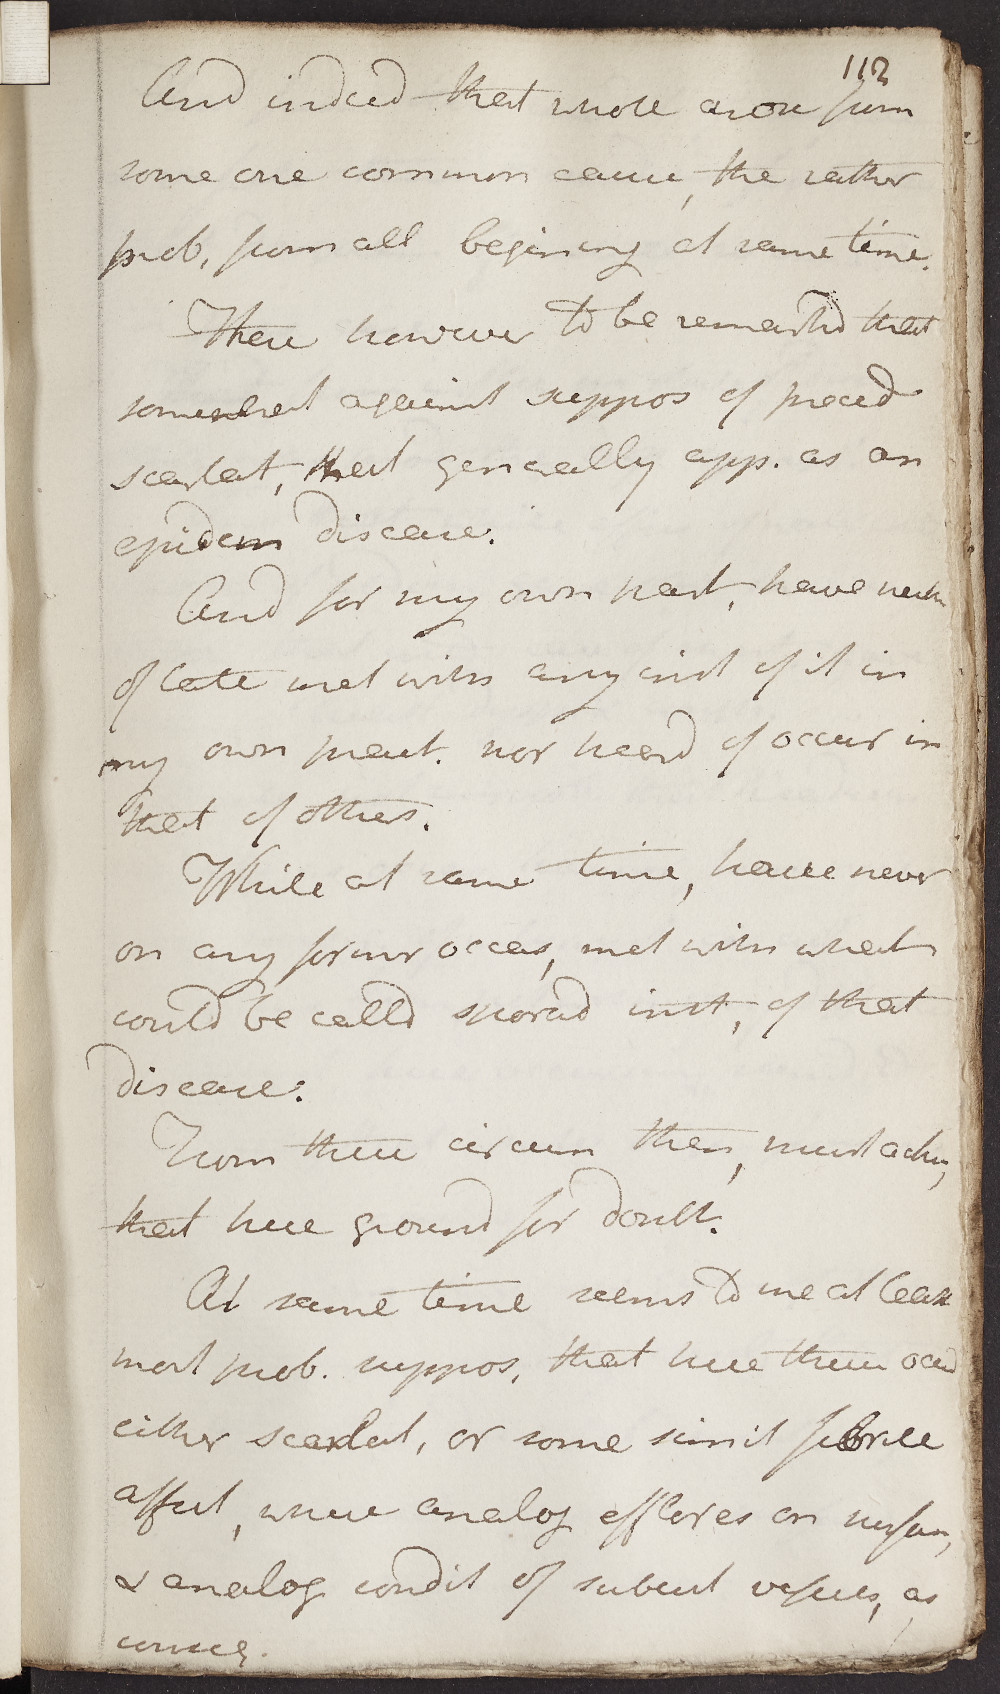 112
And indeed that whole arose from
some one common cause, the rather
prob, from all begining at same time.
There however to be remarkd that
somewhat against suppos of preced
scarlat, that generally app. as an
epidem disease.
And for my own part, have neither
of late met with any inst of it in
my own pract. nor heard of occur in
that of others.
While at same time, have never
on any former occas, met with what
could be calld sporad inst, of that
disease.
From these circum then, must ackn,
that here ground for doubt.
At same time seems to me at least
most prob. suppos, that here there occurd
either scarlat, or some simil febrile
affect, where analog efflores on surfac,
& analog condit of subcut vessels, as
conseq.